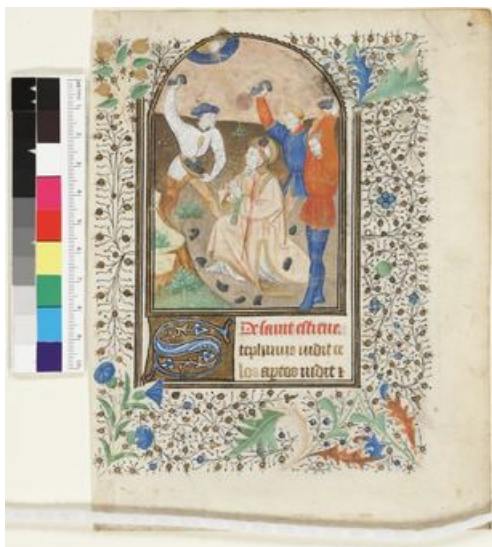 De saint estiene.
Stephanus vidit ce
los aptos vidit ⁊